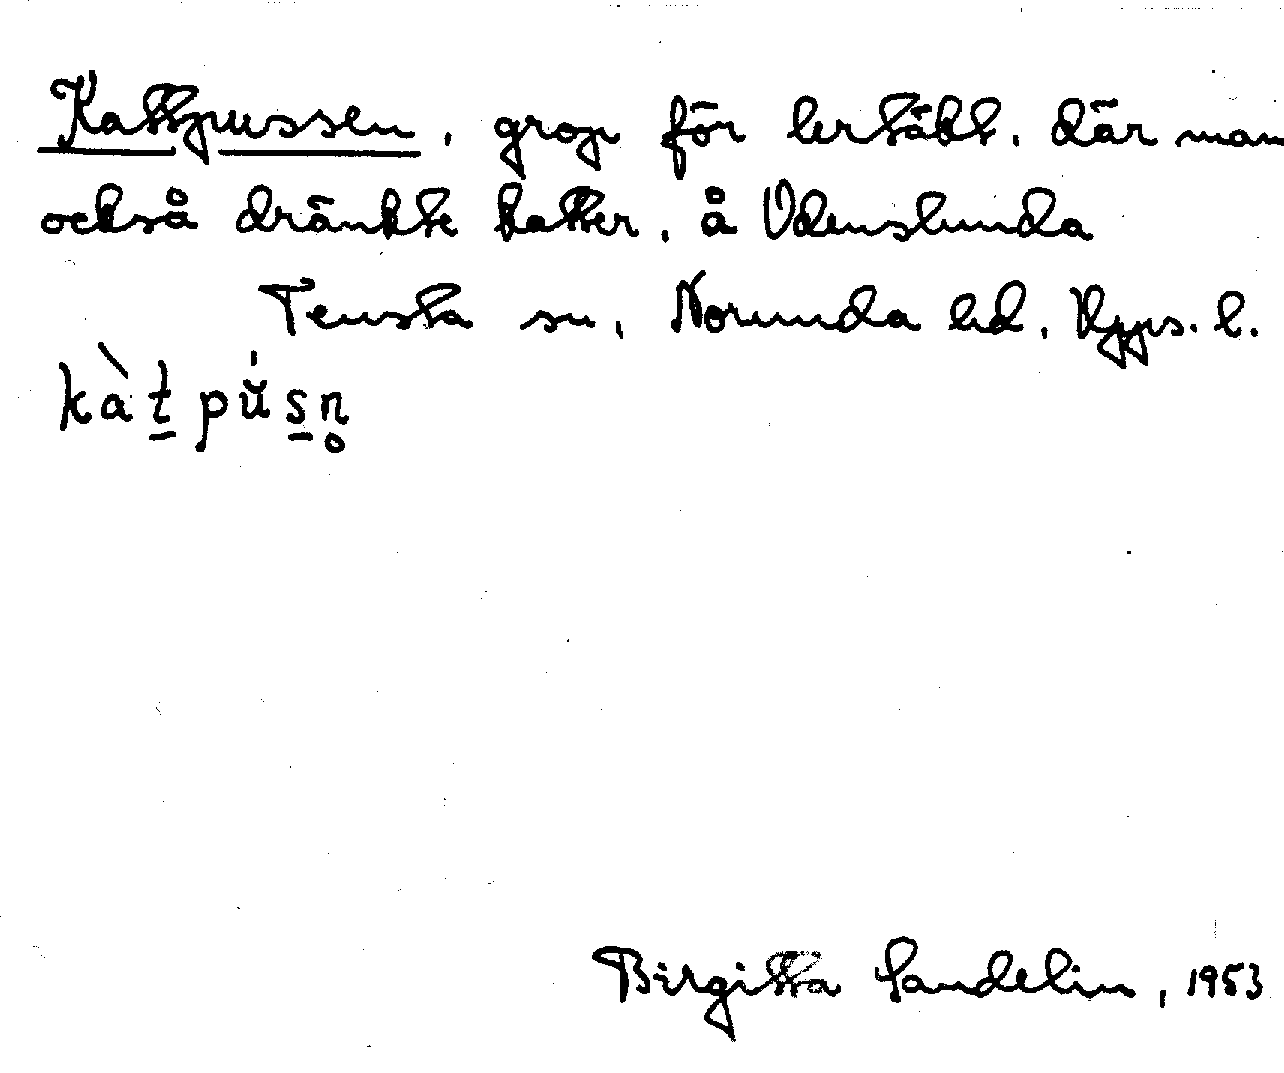 Kattpussen, grop för lertäkt, där man
också dränkte katter, å Odenslunda
Tensta sn, Norunda hd, Upps. l.
kàt̠ pŭ́s̠n̥
Birgitta Sandelin, 1953